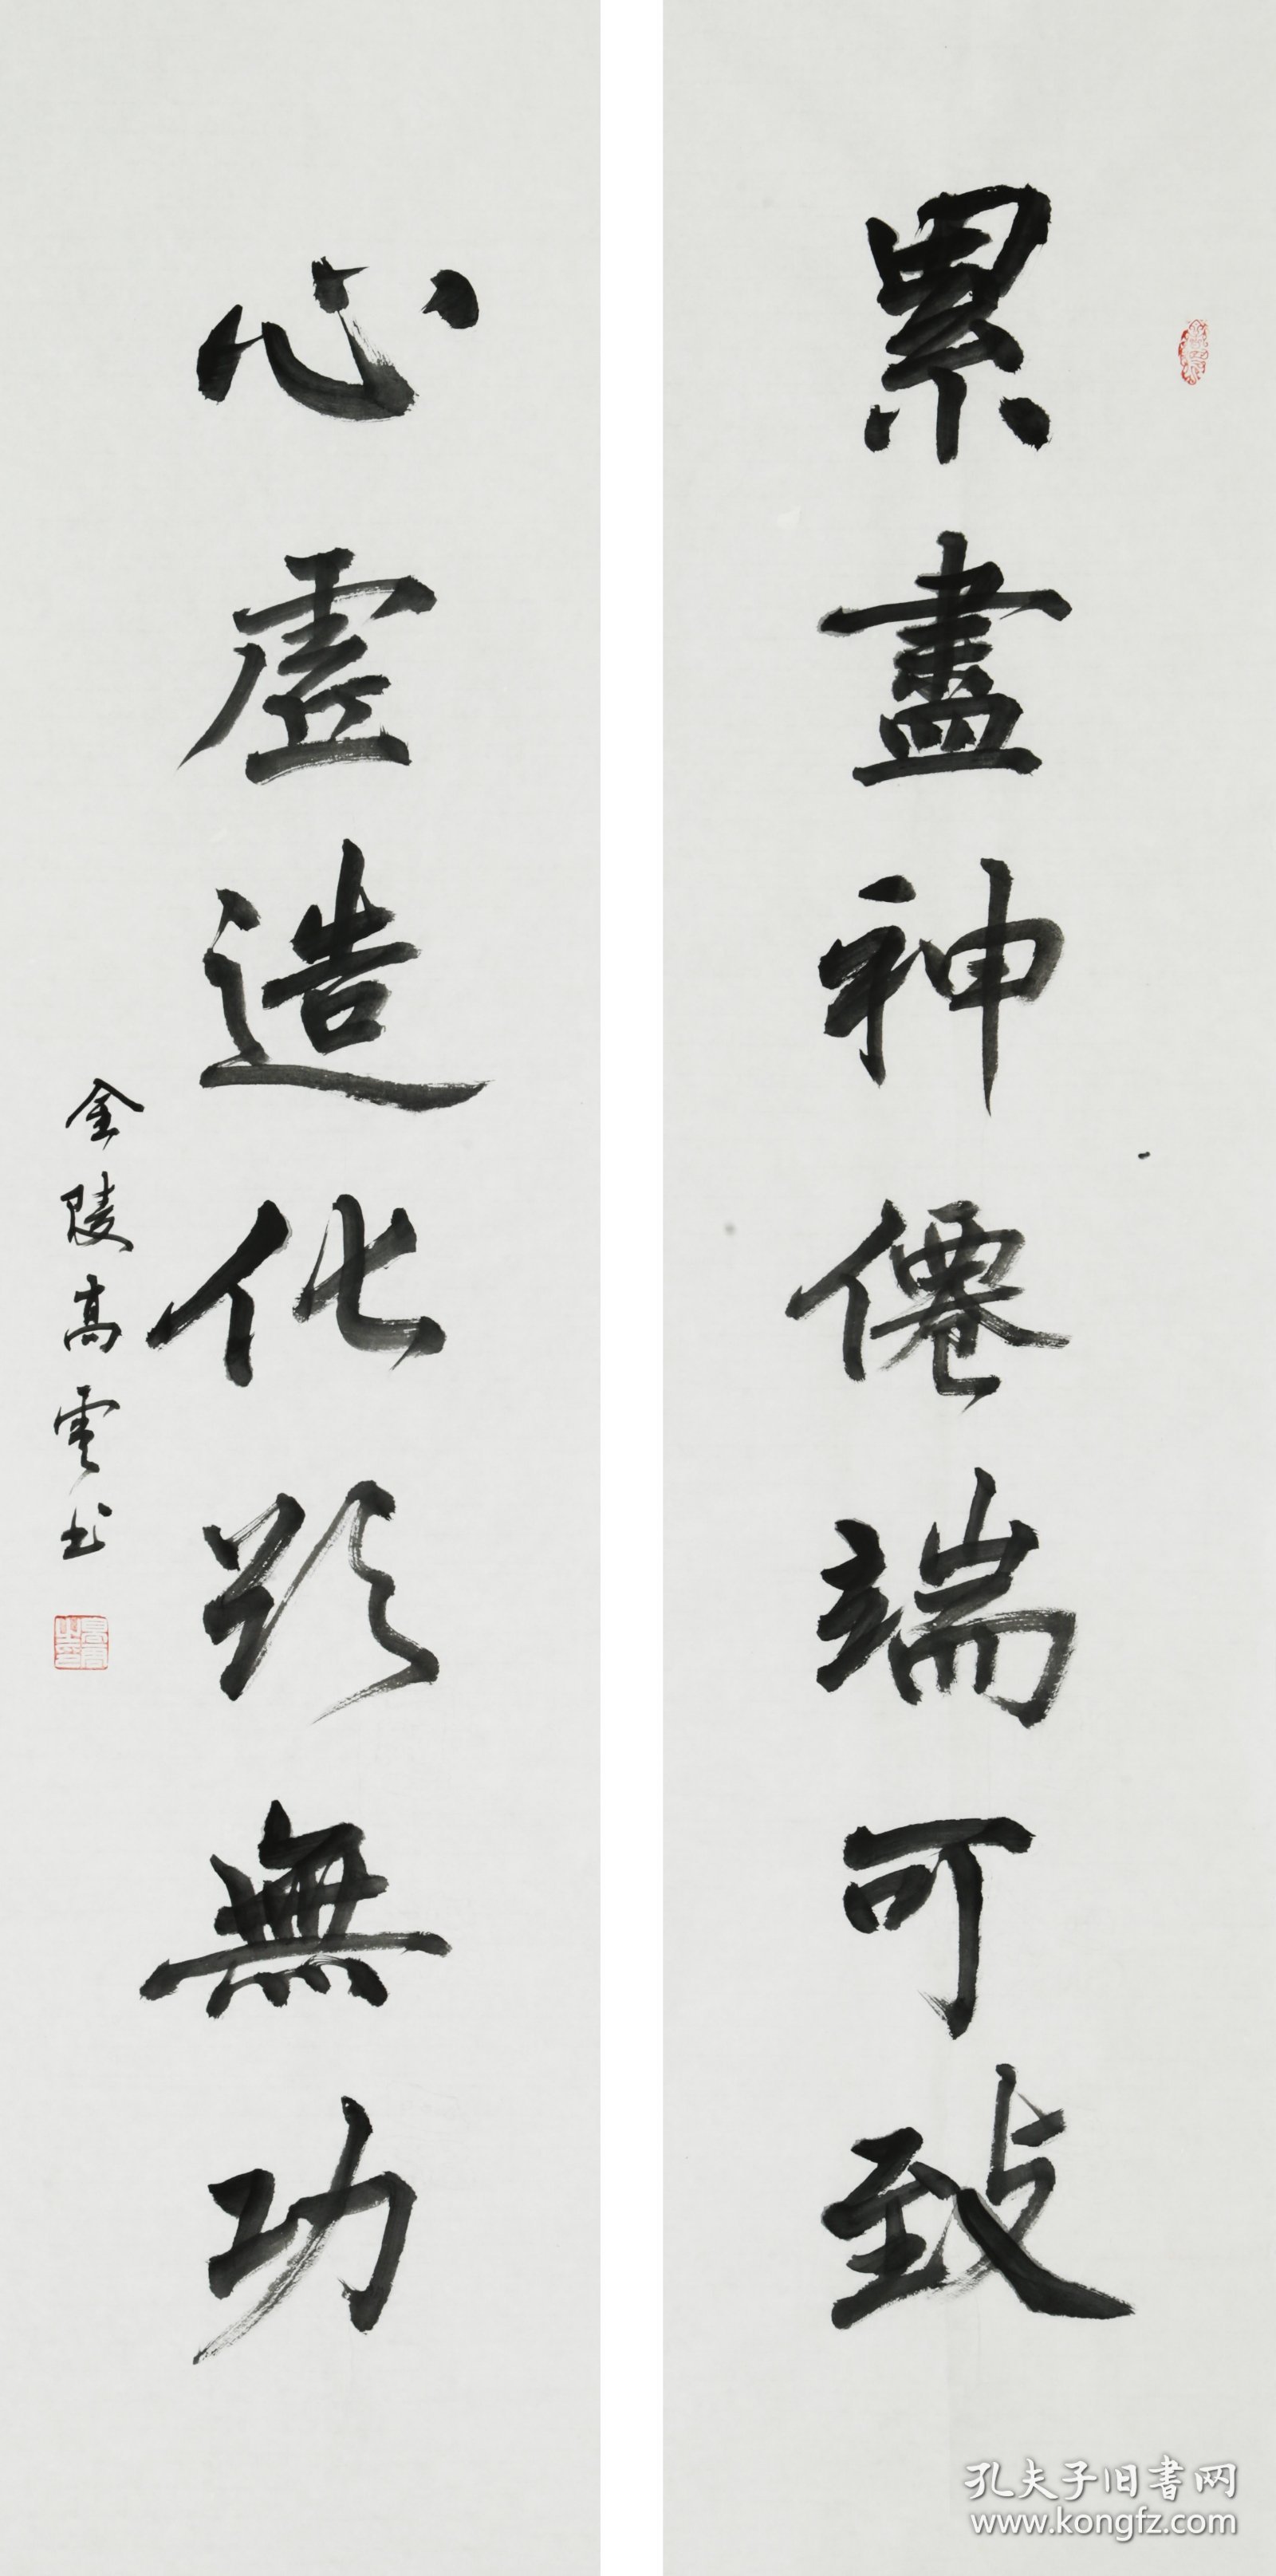 累盡神僊端可致
心虛造化欻無功
金陵高雲书
孔夫子旧書网
www.kongfz.com